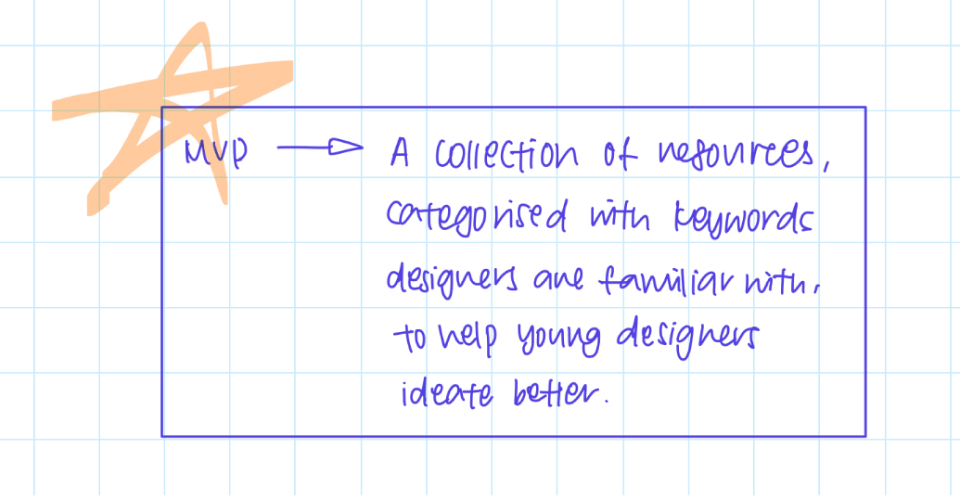 MVP → A collection of resources,
categorised with keywords
designers are familiar with,
to help young designers
ideate better.